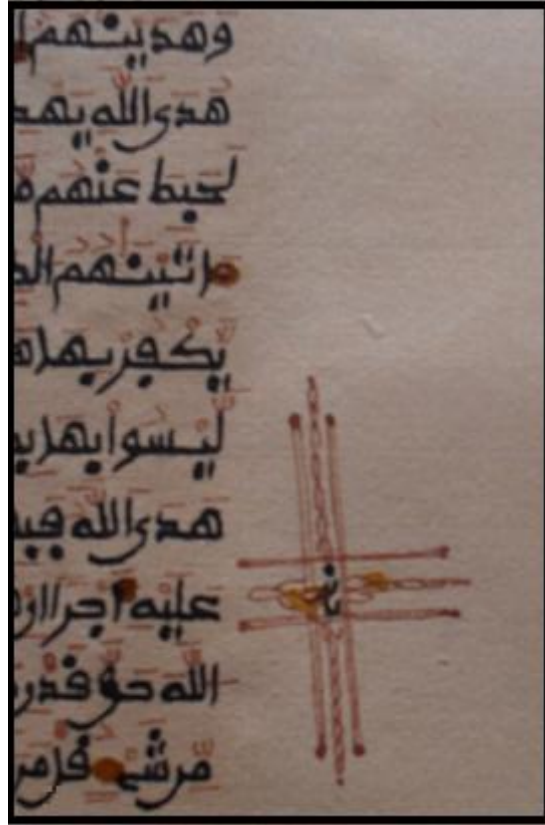 وهدينهم ا
هدى الله يهد
لحبط عنهم م
اتينهم الك
يكفر بها ه
ليسوا بها ب
هدى الله فب
عليه اجرا ا
الله حق قدر
من شيء قل من